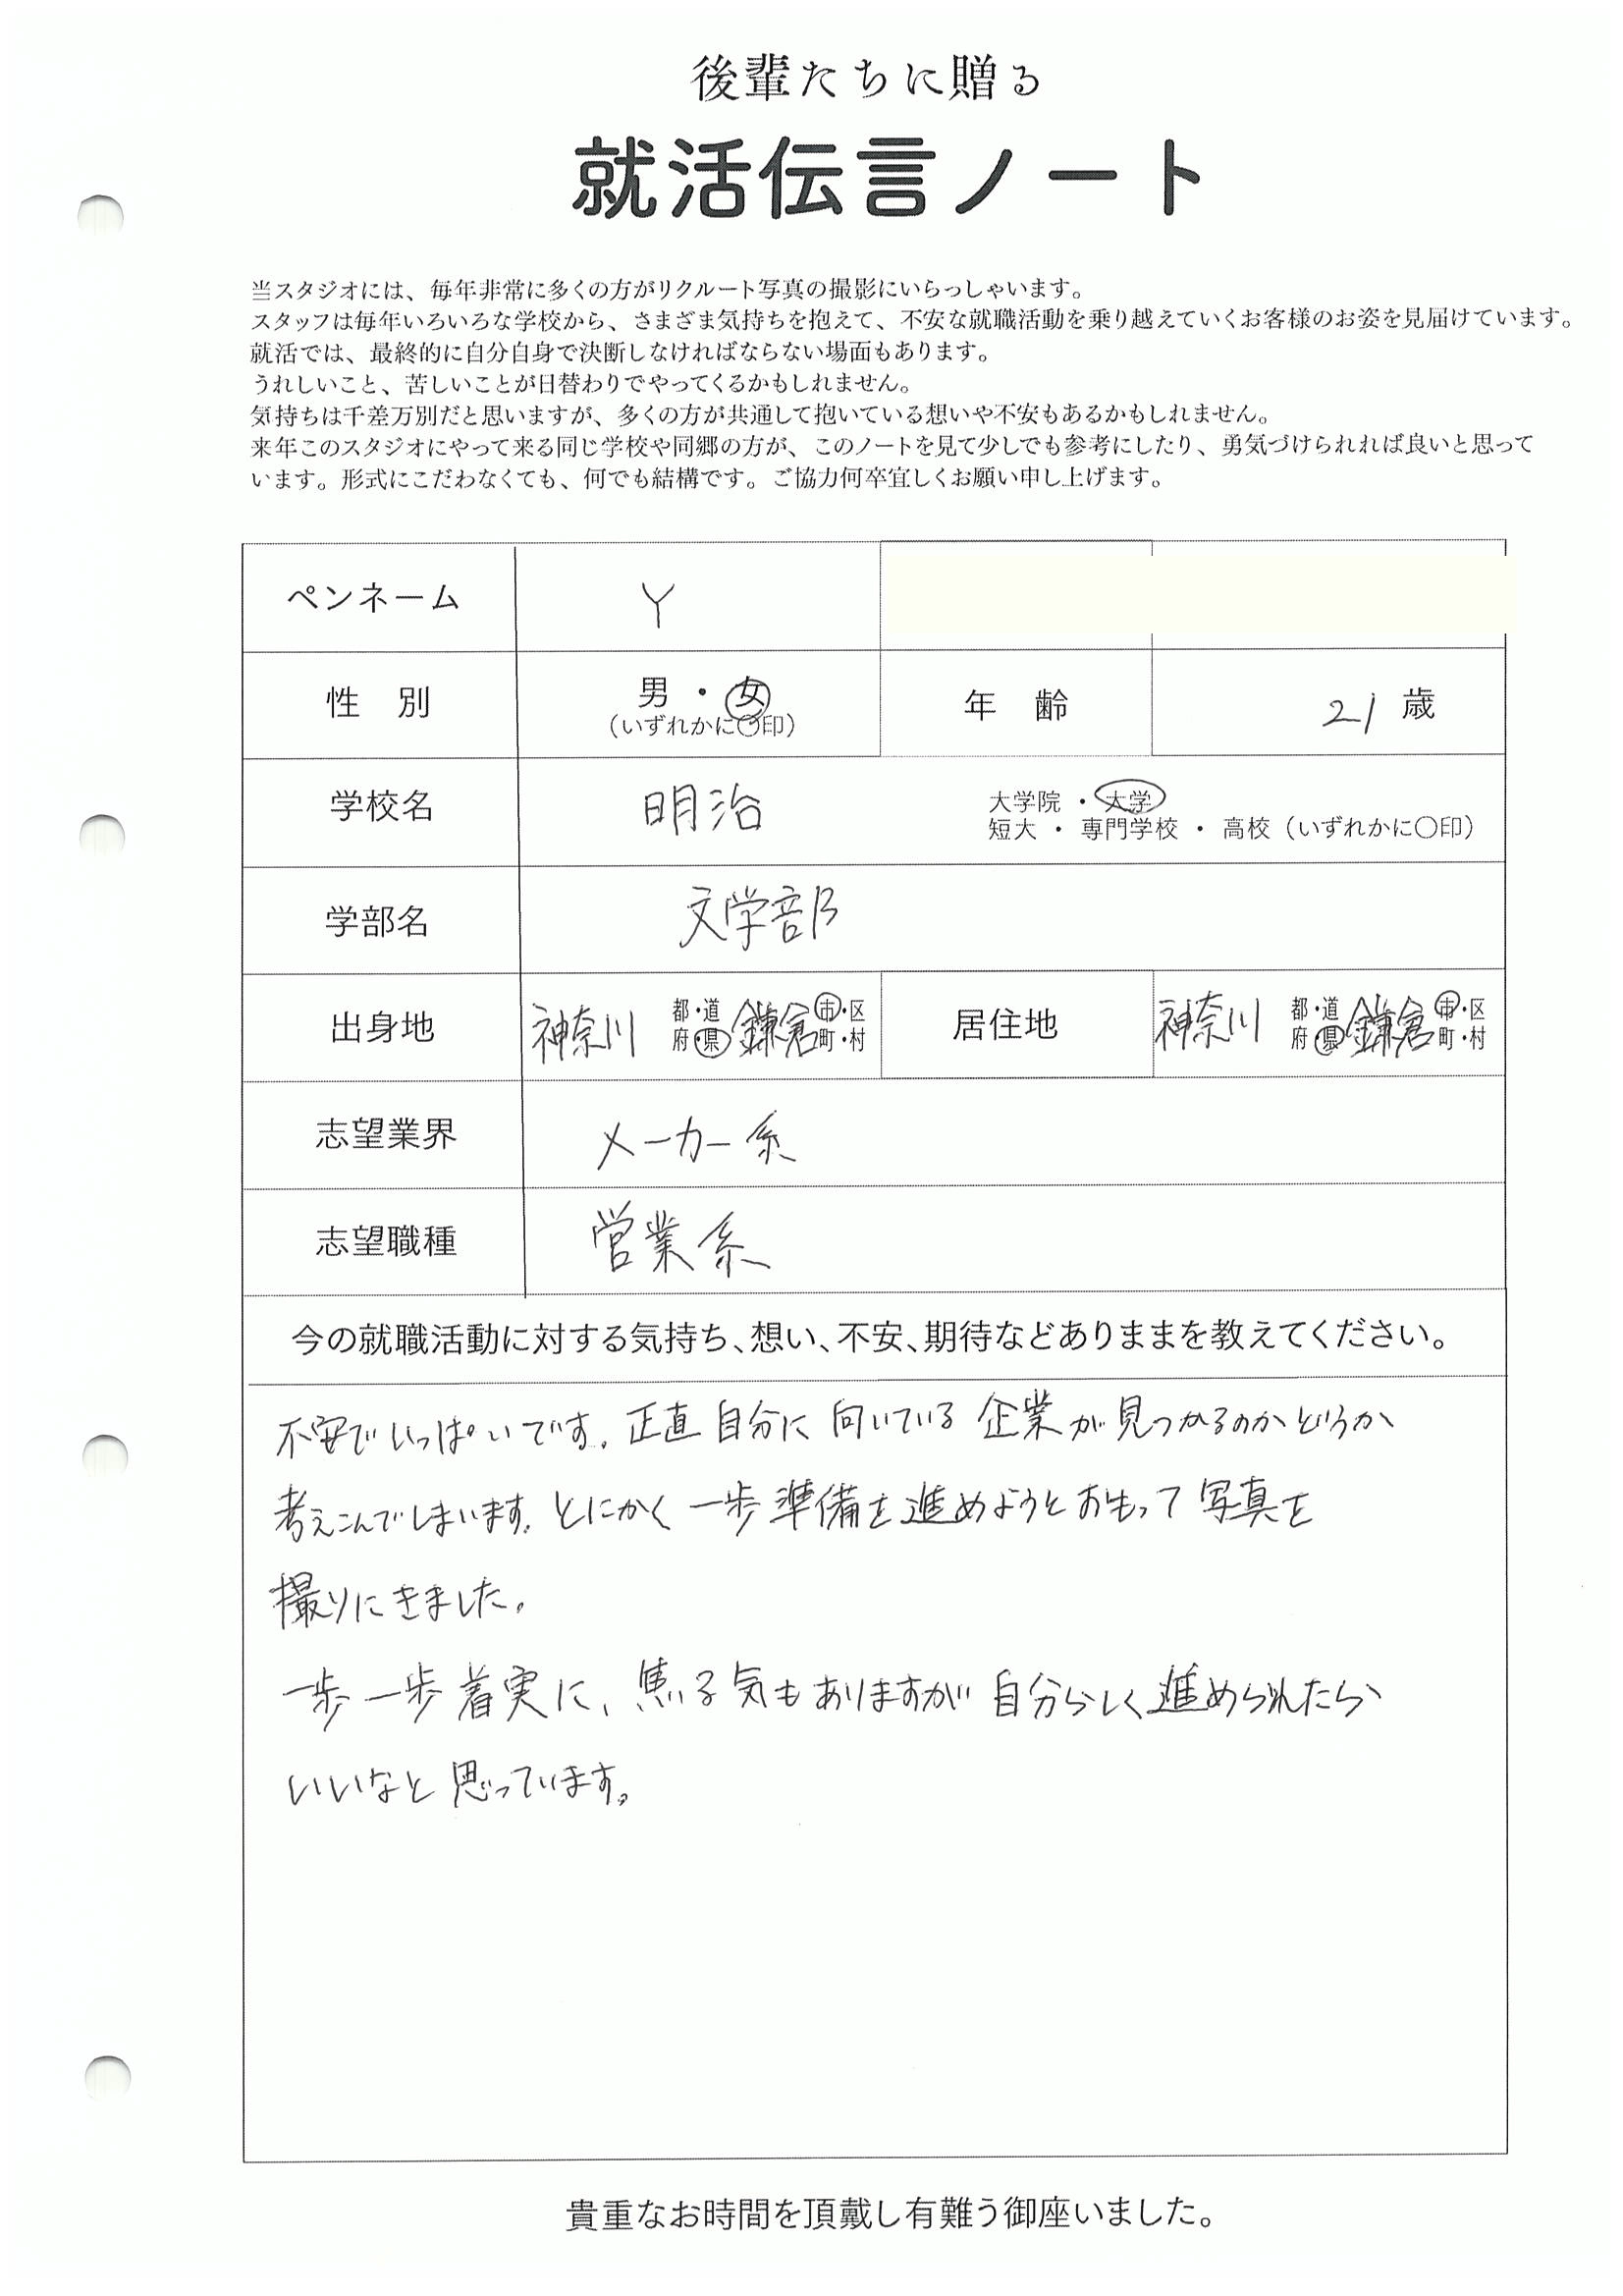 後輩たちに贈る
就活伝言ノート
当スタジオには、毎年非常に多くの方がリクルート写真の撮影にいらっしゃいます。
スタッフは毎年いろいろな学校から、さまざま気持ちを抱えて、不安な就職活動を乗り越えていくお客様のお姿を見届けています。
就活では、最終的に自分自身で決断しなければならない場面もあります。
うれしいこと、苦しいことが日替わりでやってくるかもしれません。
気持ちは千差万別だと思いますが、多くの方が共通して抱いている想いや不安もあるかもしれません。
来年このスタジオにやって来る同じ学校や同郷の方が、このノートを見て少しでも参考にしたり、勇気づけられれば良いと思って
います。形式にこだわなくても、何でも結構です。ご協力何卒宜しくお願い申し上げます。
ペンネーム Y
性 別 男 ・ 女 (いずれかに〇印) 年 齢 21 歳
学校名 明治 大学院 ・ 大学
短大 ・ 専門学校 ・ 高校 (いずれかに〇印)
学部名 文学部
出身地 神奈川 都・道 府・県 鎌倉 市・区 町・村 居住地 神奈川 都・道 府・県 鎌倉 市・区 町・村
志望業界 メーカー系
志望職種 営業系
今の就職活動に対する気持ち、想い、不安、期待などありままを教えてください。
不安でいっぱいです。正直自分に向いている企業が見つかるのかどうか
考えこんでしまいます。とにかく一歩準備を進めようとおもって写真を
撮りにきました。
一歩一歩着実に、焦る気もありますが自分らしく進められたら
いいなと思っています。
貴重なお時間を頂戴し有難う御座いました。